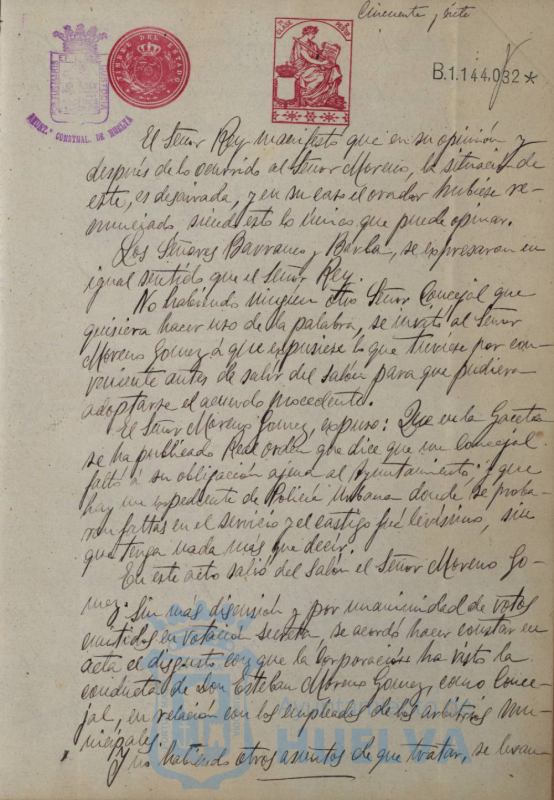 Cincuenta y siete
TIMBRE DEL ESTADO
CLASE
B.1.144.032*
AYUNT.º CONSTNAL. DE HUELVA
El Señor Rey manifestó que en su opinión y
después de lo ocurrido al Señor Moreno, la situación de
este, es desairada, y en su caso el orador hubiese re-
nunciado, siendo esto lo único que puede opinar.
Los Señores Barranco y Barba, se expresaron en
igual sentido que el Señor Rey.
No habiendo ningún otro Señor Concejal que
quisiera hacer uso de la palabra, se invitó al Señor
Moreno Gomez á que expusiese lo que tuviese por con-
veniente antes de salir del salón para que pudiera
adoptarse el acuerdo procedente.
El Señor Moreno Gomez, expuso: Que en la Gaceta
se ha publicado Real orden que dice que un concejal
faltó á su obligación ajena al Ayuntamiento; y que
hay un expediente de Policía Urbana donde se proba-
ron faltas en el servicio y el castigo fué levísimo, sin
que tenga nada más que decir.
En este acto salió del Salón el Señor Moreno Go-
mez. Sin más discusión y por unanimidad de votos
emitidos en votación secreta, se acordó hacer constar en
acta el disgusto con que la Corporación ha visto la
conducta de Don Esteban Moreno Gomez, como Conce-
jal, en relación con los empleados de los arbitrios mu-
nicipales.
Y no habiendo otros asuntos de que tratar, se levan-
HUELVA